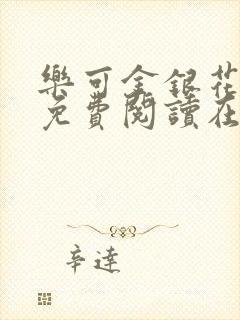 樂可金銀花
免費閱讀在
辛達